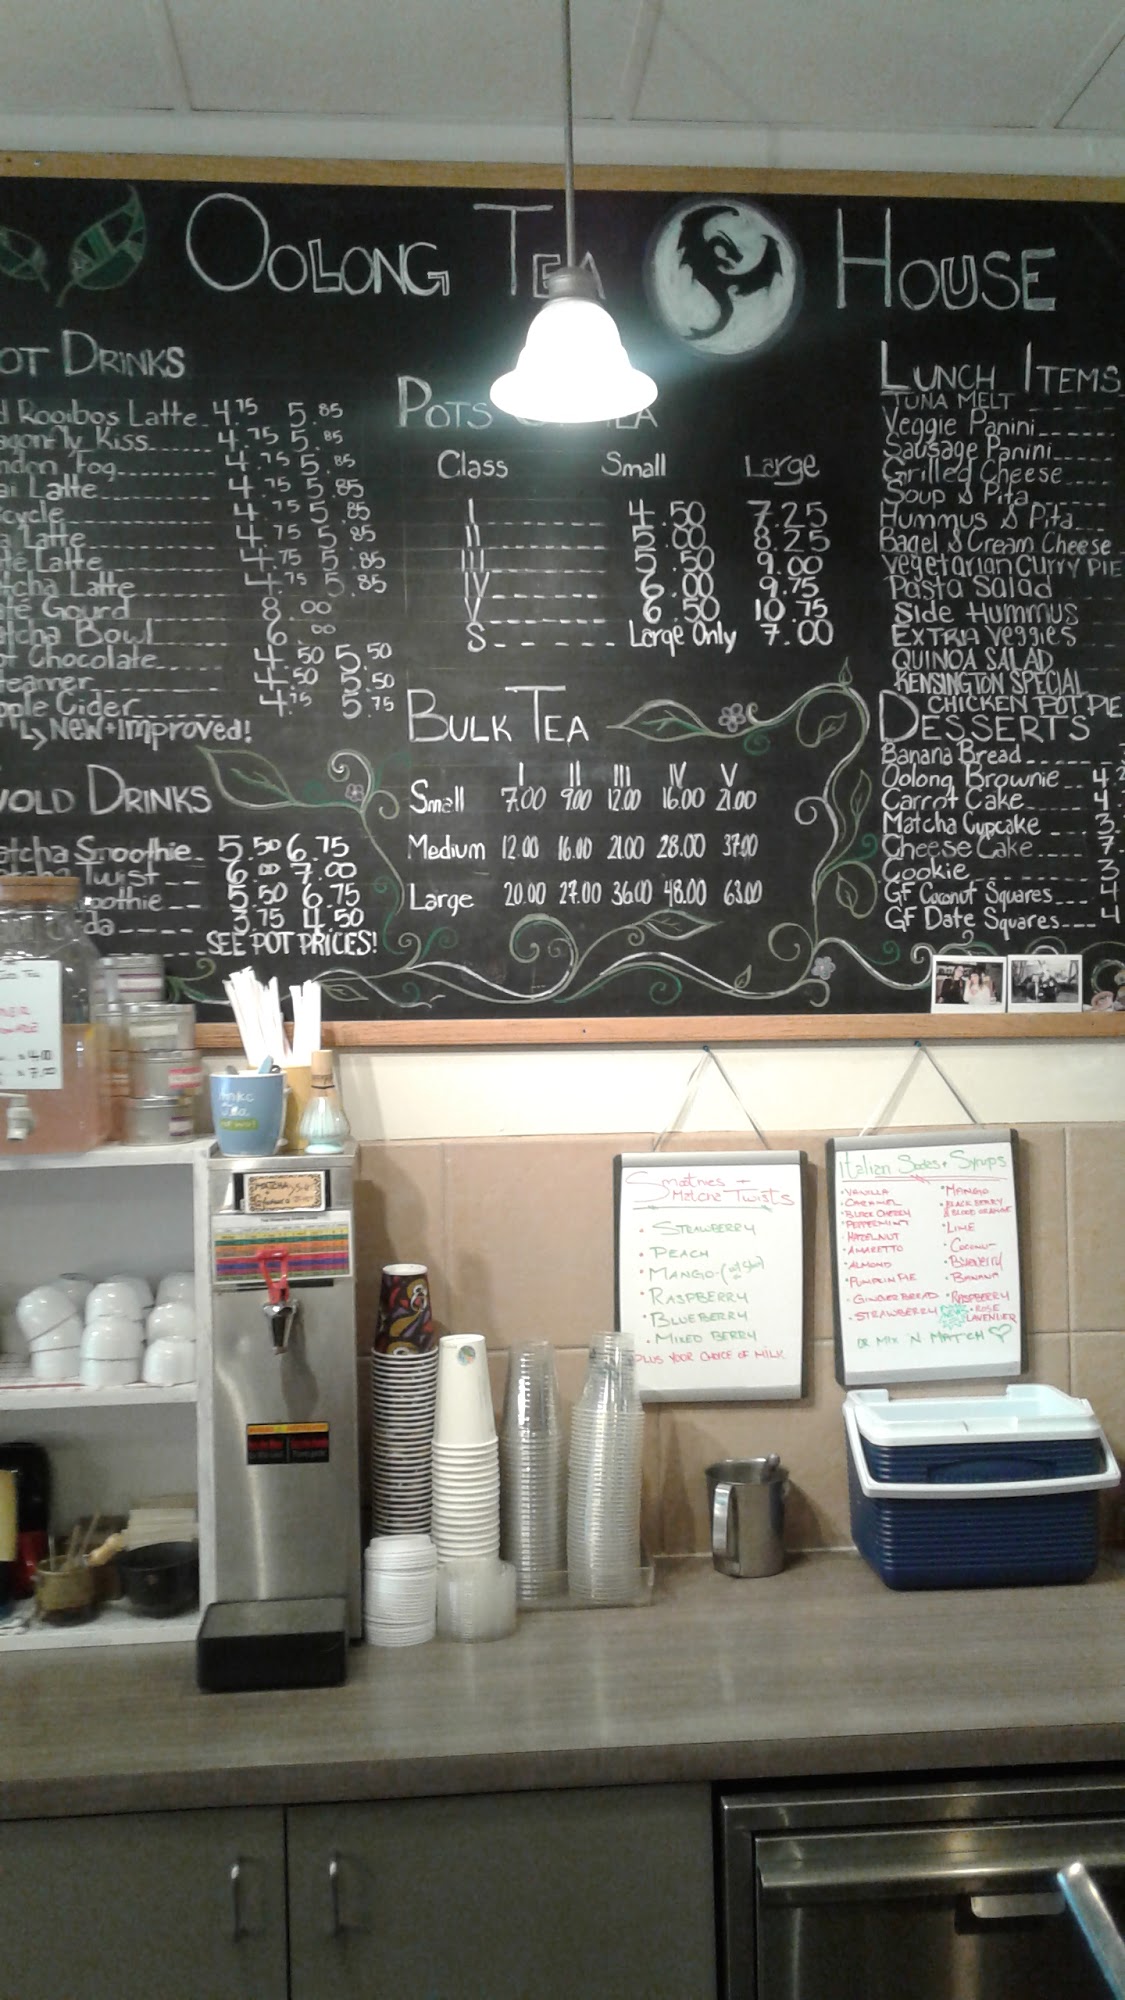 OOLONG TEA HOUSE
OT DRINKS
d Rooibos Latte 4.75 5.85
agonfly Kiss 4.75 5.85
ndon Fog 4.75 5.85
ai Latte 4.75 5.85
cycle 4.75 5.85
a Latte 4.75 5.85
té Latte 4.75 5.85
tcha Latte 4.75 5.85
até Gourd 8.00
atcha Bowl 6.00
ot Chocolate 4.50 5.50
teamer 4.50 5.50
pple Cider 4.75 5.75
New + Improved!
OLD DRINKS
atcha Smoothie 5.50 6.75
atcha Twist 6.00 7.00
oothie 5.50 6.75
da 3.75 4.50
SEE POT PRICES!
POTS TEA
Class Small Large
I 4.50 7.25
II 5.00 8.25
III 5.50 9.00
IV 6.00 9.75
V 6.50 10.75
S Large Only 7.00
BULK TEA
I II III IV V
Small 7.00 9.00 12.00 16.00 21.00
Medium 12.00 16.00 21.00 28.00 37.00
Large 20.00 27.00 36.00 48.00 63.00
LUNCH ITEMS
TUNA MELT
Veggie Panini
Sausage Panini
Grilled Cheese
Soup & Pita
Hummus & Pita
Bagel & Cream Cheese
Vegetarian Curry PIE
Pasta Salad
Side Hummus
EXTRA Veggies
QUINOA SALAD
KENSINGTON SPECIAL
CHICKEN POT PIE
DESSERTS
Banana Bread
Oolong Brownie 4
Carrot Cake 4.
Matcha Cupcake 3.
Cheese Cake 7.
Cookie 3
GF Coconut Squares 4
GF Date Squares 4
Smoothies + Matcha Twists
• STRAWBERRY
• PEACH
• MANGO
• RASPBERRY
• BLUEBERRY
• MIXED BERRY
PLUS YOUR CHOICE OF MILK
Italian Sodas + Syrups
• VANILLA
• CARAMEL
• BLACK CHERRY
• PEPPERMINT
• HAZELNUT
• AMARETTO
• ALMOND
• PUMPKIN PIE
• GINGERBREAD
• STRAWBERRY
• MANGO
• BLACKBERRY
& BLOOD ORANGE
• LIME
• COCONUT
• BLUEBERRY
• BANANA
• RASPBERRY
• ROSE
LAVENDER
OR MIX 'N MATCH